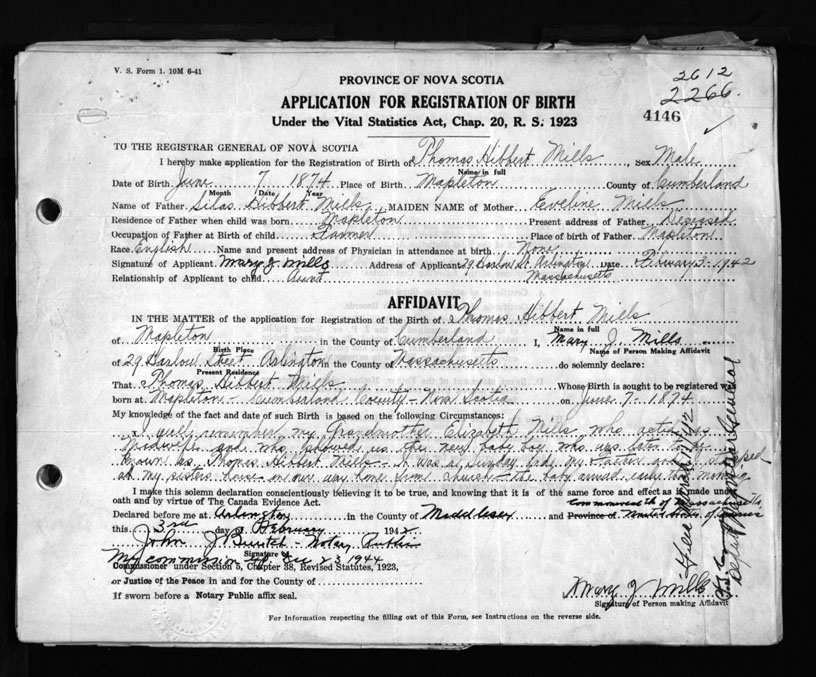 V. S. Form 1. 10M 6-41
2612
2266.
4146
PROVINCE OF NOVA SCOTIA
APPLICATION FOR REGISTRATION OF BIRTH
Under the Vital Statistics Act, Chap. 20, R. S. 1923
TO THE REGISTRAR GENERAL OF NOVA SCOTIA
I hereby make application for the Registration of Birth of Thomas Hibbert Mills, Sex Male
Name in full
Date of Birth June 7 1874 Place of Birth Mapleton County of Cumberland
Month Date Year
Name of Father Silas Hibbert Mills, MAIDEN NAME of Mother Eveline Mills
Residence of Father when child was born Mapleton Present address of Father Deceased
Occupation of Father at Birth of child Farmer Place of birth of Father Mapleton
Race English Name and present address of Physician in attendance at birth None
Signature of Applicant Mary J Mills Address of Applicant 29 Barlow St Arlington Date 3-1942
Massachusetts
Relationship of Applicant to child Aunt
AFFIDAVIT
IN THE MATTER of the application for Registration of the Birth of Thomas Hibbert Mills
Name in full
of Mapleton in the County of Cumberland I, Mary J. Mills
Birth Place Name of Person Making Affidavit
of 29 Barlow Street Arlington in the County of Massachusetts do solemnly declare:
Present Residence
That Thomas Hibbert Mills Whose Birth is sought to be registered was
born at Mapleton - Cumberland County - Nova Scotia on June 7 - 1874.
My knowledge of the fact and date of such Birth is based on the following Circumstances:
I well remember my Grandmother Elizabeth Mills who acted as
Midwife and who showed us the new baby boy who was later to be
known as Thomas Hibbert Mills - It was a Sunday my Father and I stopped
at my sisters house on our way home from church - the baby arrived early that morning
I make this solemn declaration conscientiously believing it to be true, and knowing that it is of the same force and effect as if made under
oath and by virtue of The Canada Evidence Act.
Commonwealth of Massachusetts
Declared before me at Arlington in the County of Middlesex and Province of United States of America
this 3rd day of February 1942
John J. - Notary Public
Signature of
My commission Dec 23 1944
Commissioner under Section 5, Chapter 38, Revised Statutes, 1923,
or Justice of the Peace in and for the County of
If sworn before a Notary Public affix seal.
Mary J Mills
Signature of Person making Affidavit
For Information respecting the filling out of this Form, see Instructions on the reverse side.
Filed
Deputy Registrar General